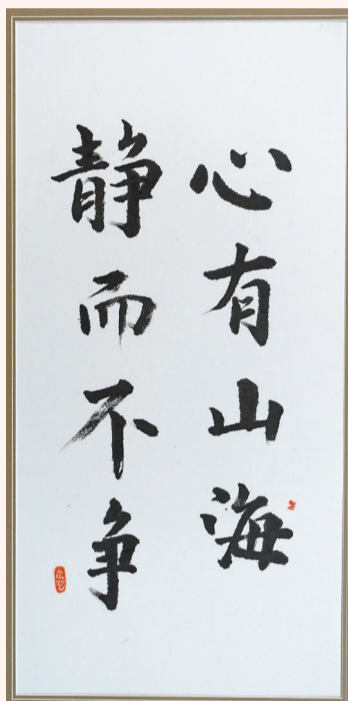 心有山海
静而不争